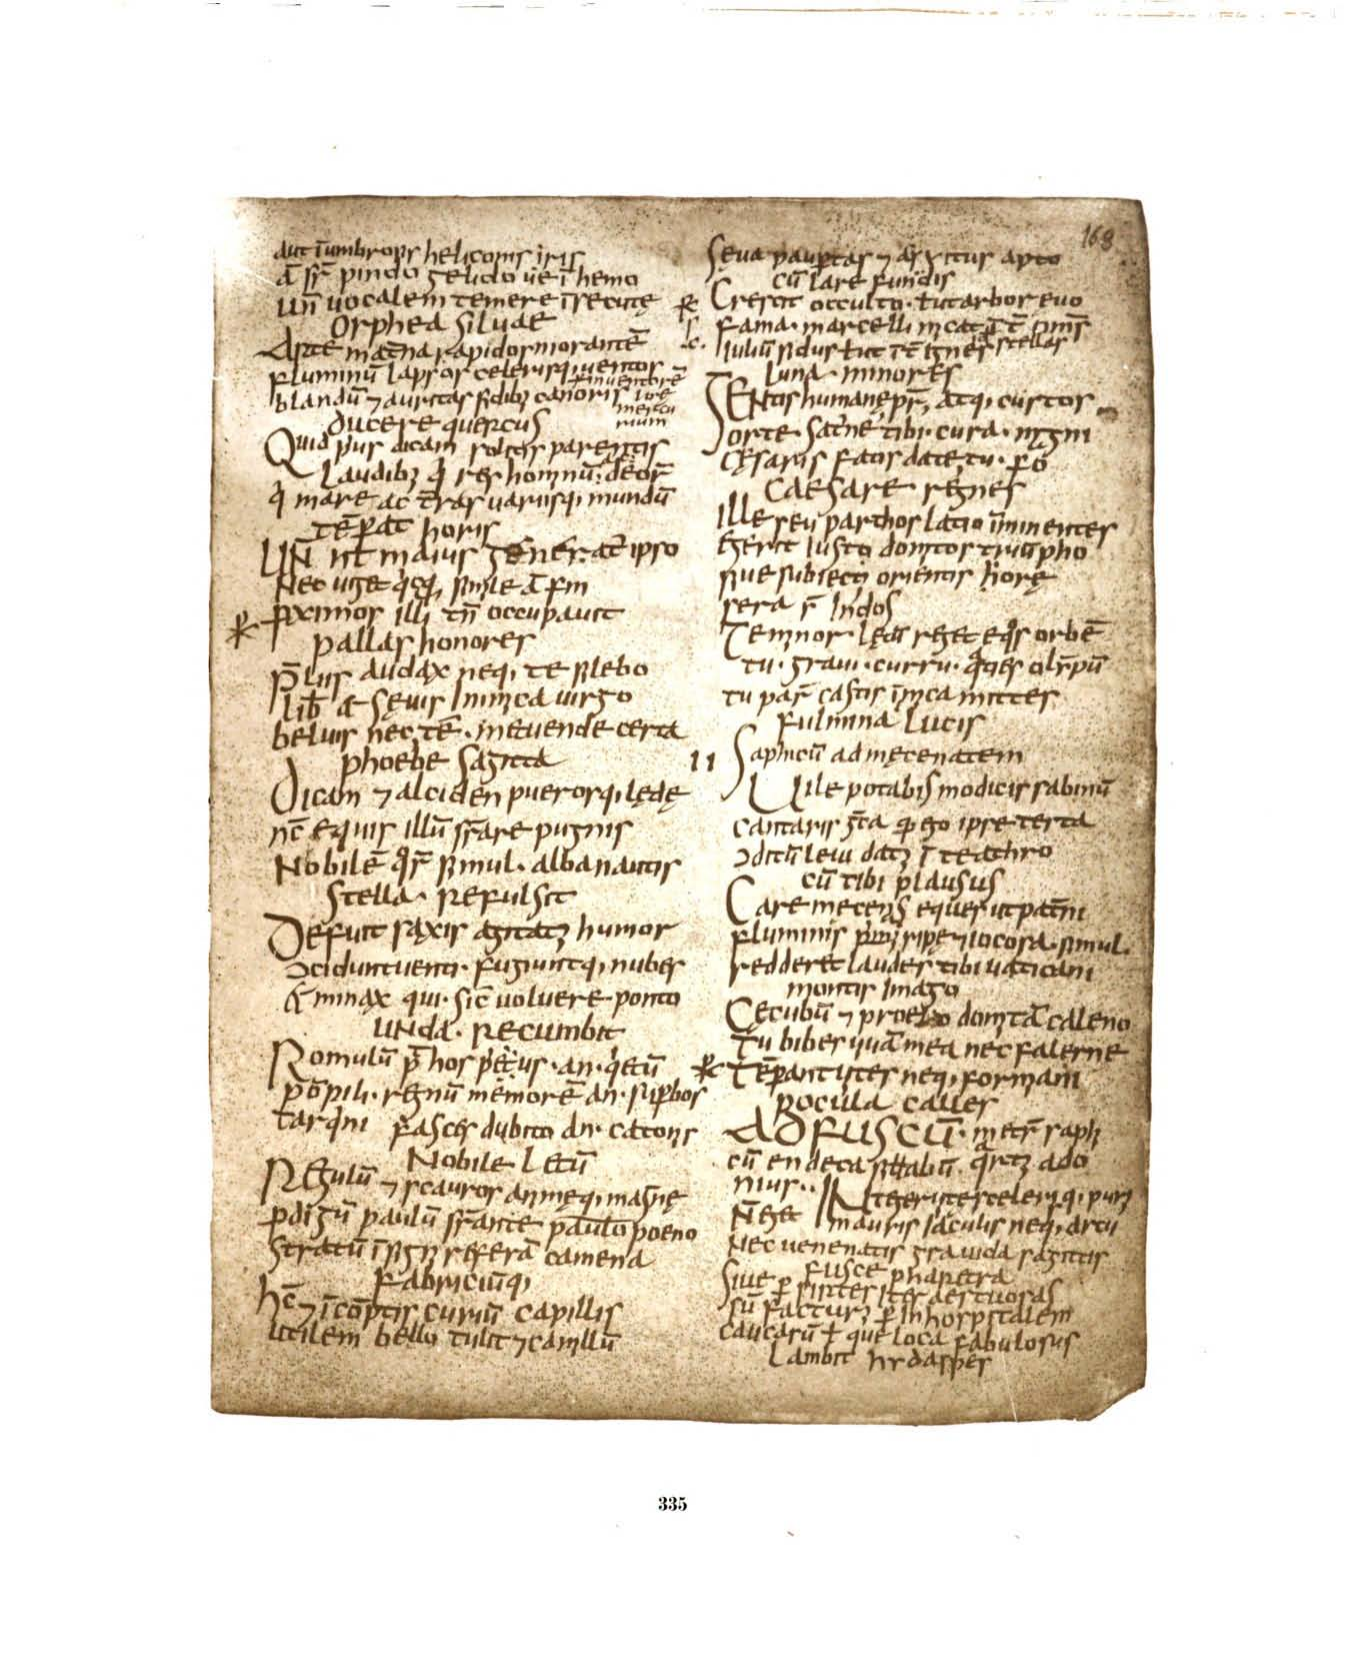 168
aut īumbrosis heliconis oris
ā sr̄ pindo gelido ue ī hemo
un̄ uocalem temere īsecutę
orphea siluae
Arte mat̄na rapidos morantē
fluminū lapsos celerisq; uentos
blandū ⁊ auritas fidib; canoris
ducere quercus
Quid prius dicam solitis parentis
Laudib; q̄ res hominū, deor̄
q̄ mare ac t̄ras uariisq; mundū
tēpat horis
UN̄ nt̄ maius generat̄ ipso
Nec uiget q̄cq; simile ā scm
pximos illi tn̄ occupauit
pallas honores
p̄liis audax neq; te silebo
lib̄ & sęuis inimica uirgo
beluis nec tē. metuende certa
phoebe sagitta
Dicam ⁊ alciden puerosq; lędę
hc̄ equis illū sr̄are pugnis
Nobilē q̄r̄ simul. alba nautis
stella. refulsit
Defluit saxis agitat; humor
Ɔcidunt uenti. fugiuntq; nubes
& minax qui. sic̄ uoluere. ponto
unda. recumbit
Romulū p̄ hos prius. an. q̄etū
pōpili. regnū memorē an. supbos
tarq̄ni fasces dubito an. catonis
Nobile letū
Regulū ⁊ scauros animęq; magnę
pdigū paulū sr̄ante paulo poeno
gratū īsigni referā camena
fabriciūq;
hc̄ ⁊ īcōptis curiū capillis
utilem bello tulit ⁊ camillū
Sęua paupertas ⁊ auitus apto
cū lare fundis
Crescit occulto. uelut arbor euo
fama. marcelli micat īt̄ om̄s
iuliū sidus uelut īt̄ ignes stellas
luna minores
GENtis humanę pr̄, atq; custos
orte. Sat̄ne tibi. cura. magni
cęsaris fatis data, tu. scdo
caesare regnes
ille seu parthos latio īminentes
egerit iusto domitos triūpho
siue subiectos orientis horę
seras & indos
Te minor lętū reget eq̄s orbē
tu. graui. curru. q̄ties olȳpū
tu parū castis īimica mittes
fulmina lucis
11 Saphicū ad męcenatem
Uile potabis modicis sabinū
cantaris g̅ta qd ego ipse testa
Ɔditū leui dat; ī teathro
cū tibi plausus
Care mecenas eques ut pat̄ni
fluminis ripę ⁊ iocosa. simul.
redderet laudes tibi uaticani
montis imago
Cęcubū ⁊ proelo domitā caleno
Tu bibes uuā mea nec falerne
tēpant uites neq; formiani
pocula calles
AD FUSCŪ. metr̄ saph
cū endecasillabū. q̄rt; ado
nius.. INteger uite scelerisq; pur;
N̄ eget mauris iaculis neq; arcu
Nec uenenatis grauida sagittis
fusce pharetra
Siue p sirtes iter aestuosas
siū factur; p inhospitalem
caucasū ł que loca fabulosus
Lambit hydaspes
335